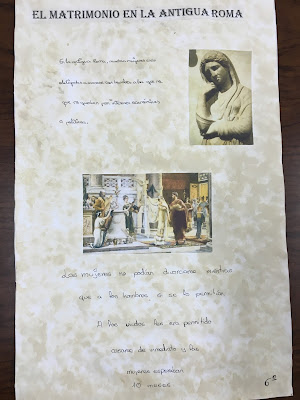 EL MATRIMONIO EN LA ANTIGUA ROMA
En la antigua Roma, muchas mujeres eran
obligadas a casarse con hombres a los que no
que no querían por intereses económicos
o políticos.
Las mujeres no podían divorciarse mientras
que a los hombres sí se lo permitían.
A los viudos les era permitido
casarse de inmediato y las
mujeres esperaban
10 meses
6º